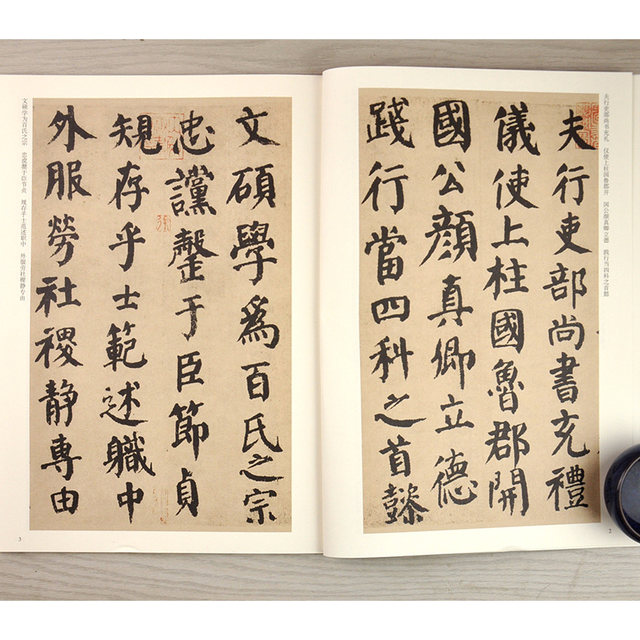 夫行吏部尚书充礼 仪使上柱国鲁郡开 国公颜真卿立德 践行当四科之首懿
夫行吏部尚書充禮
儀使上柱國魯郡開
國公顏真卿立德
踐行當四科之首懿
2
文碩學爲百氏之宗
忠讜罄于臣節貞
規存乎士範述職中
外服勞社稷靜專由
文硕学为百氏之宗 忠谠罄于臣节贞 规存乎士范述职中 外服劳社稷静专由
3